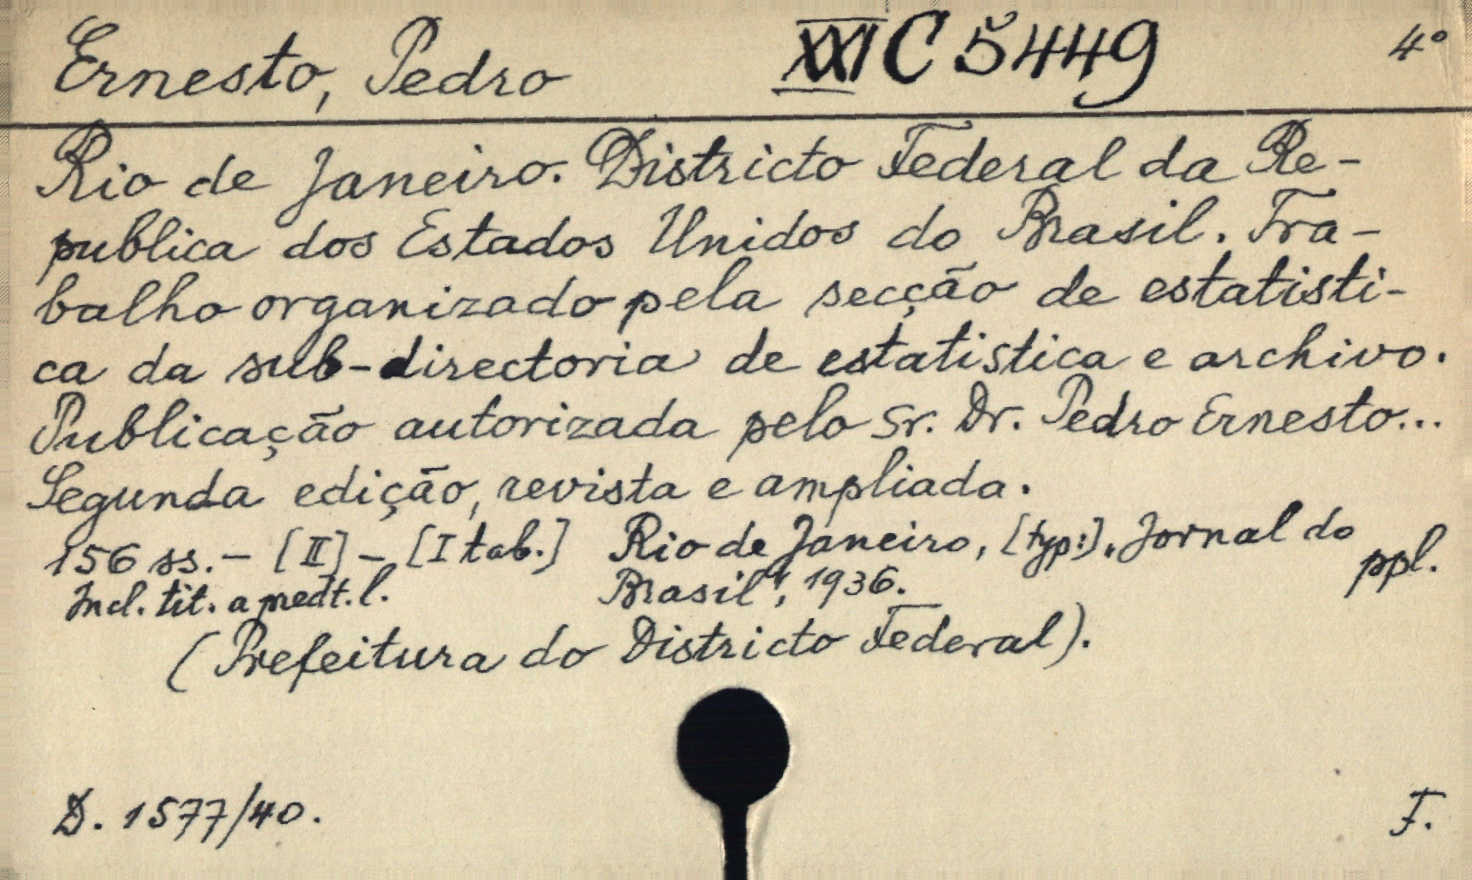 Ernesto, Pedro XXI C 5449 4°
Rio de Janeiro. Districto Federal da Re-
publica dos Estados Unidos do Brasil. Tra-
balho organizado pela secção de estatisti-
ca da sub-directoria de estatistica e archivo.
Publicação autorizada pelo Sr. Dr. Pedro Ernesto...
Segunda edição, revista e ampliada.
156 ss. - [II] - [I tab.] Rio de Janeiro, [typ:] „Jornal do
Brasil", 1936. ppl.
Incl. tit. a
(Prefeitura do Districto Federal).
D. 1577/40. F.